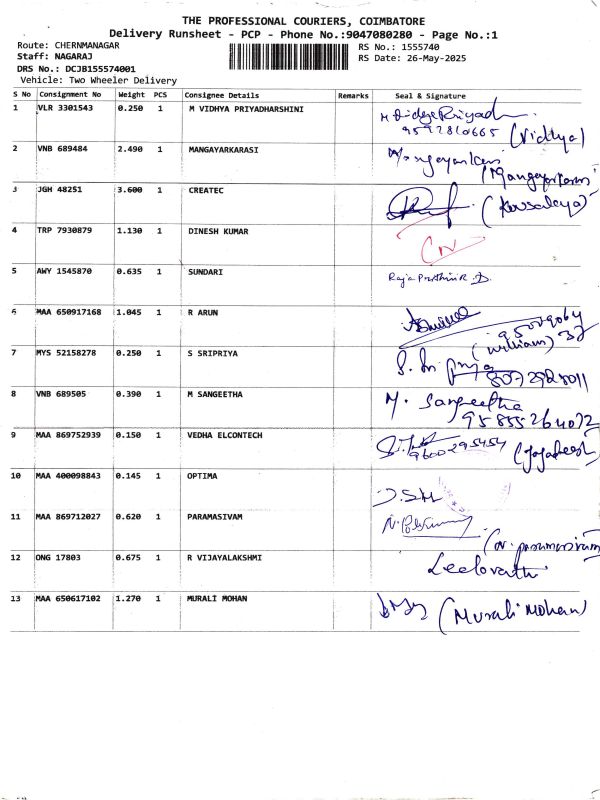 THE PROFESSIONAL COURIERS, COIMBATORE
Delivery Runsheet - PCP - Phone No.:9047080280 - Page No.:1
Route: CHERNMANAGAR RS No.: 1555740
Staff: NAGARAJ RS Date: 26-May-2025
DRS No.: DCJB155574001
Vehicle: Two Wheeler Delivery
S No Consignment No Weight PCS Consignee Details Remarks Seal & Signature
1 VLR 3301543 0.250 1 M VIDHYA PRIYADHARSHINI
9592810665 (Vidhya)
2 VNB 689484 2.490 1 MANGAYARKARASI
3 JGH 48251 3.600 1 CREATEC (Kousalaya)
4 TRP 7930879 1.130 1 DINESH KUMAR
5 AWY 1545870 0.635 1 SUNDARI
6 MAA 650917168 1.045 1 R ARUN
(william)
7 MYS 52158278 0.250 1 S SRIPRIYA S. Sri priya
8 VNB 689505 0.390 1 M SANGEETHA M. Sangeetha
9 MAA 869752939 0.150 1 VEDHA ELCONTECH 9600295454 (Jagadeesh)
10 MAA 400098843 0.145 1 OPTIMA
11 MAA 869712027 0.620 1 PARAMASIVAM
12 ONG 17803 0.675 1 R VIJAYALAKSHMI Leelavathi
13 MAA 650617102 1.270 1 MURALI MOHAN (Murali Mohan)